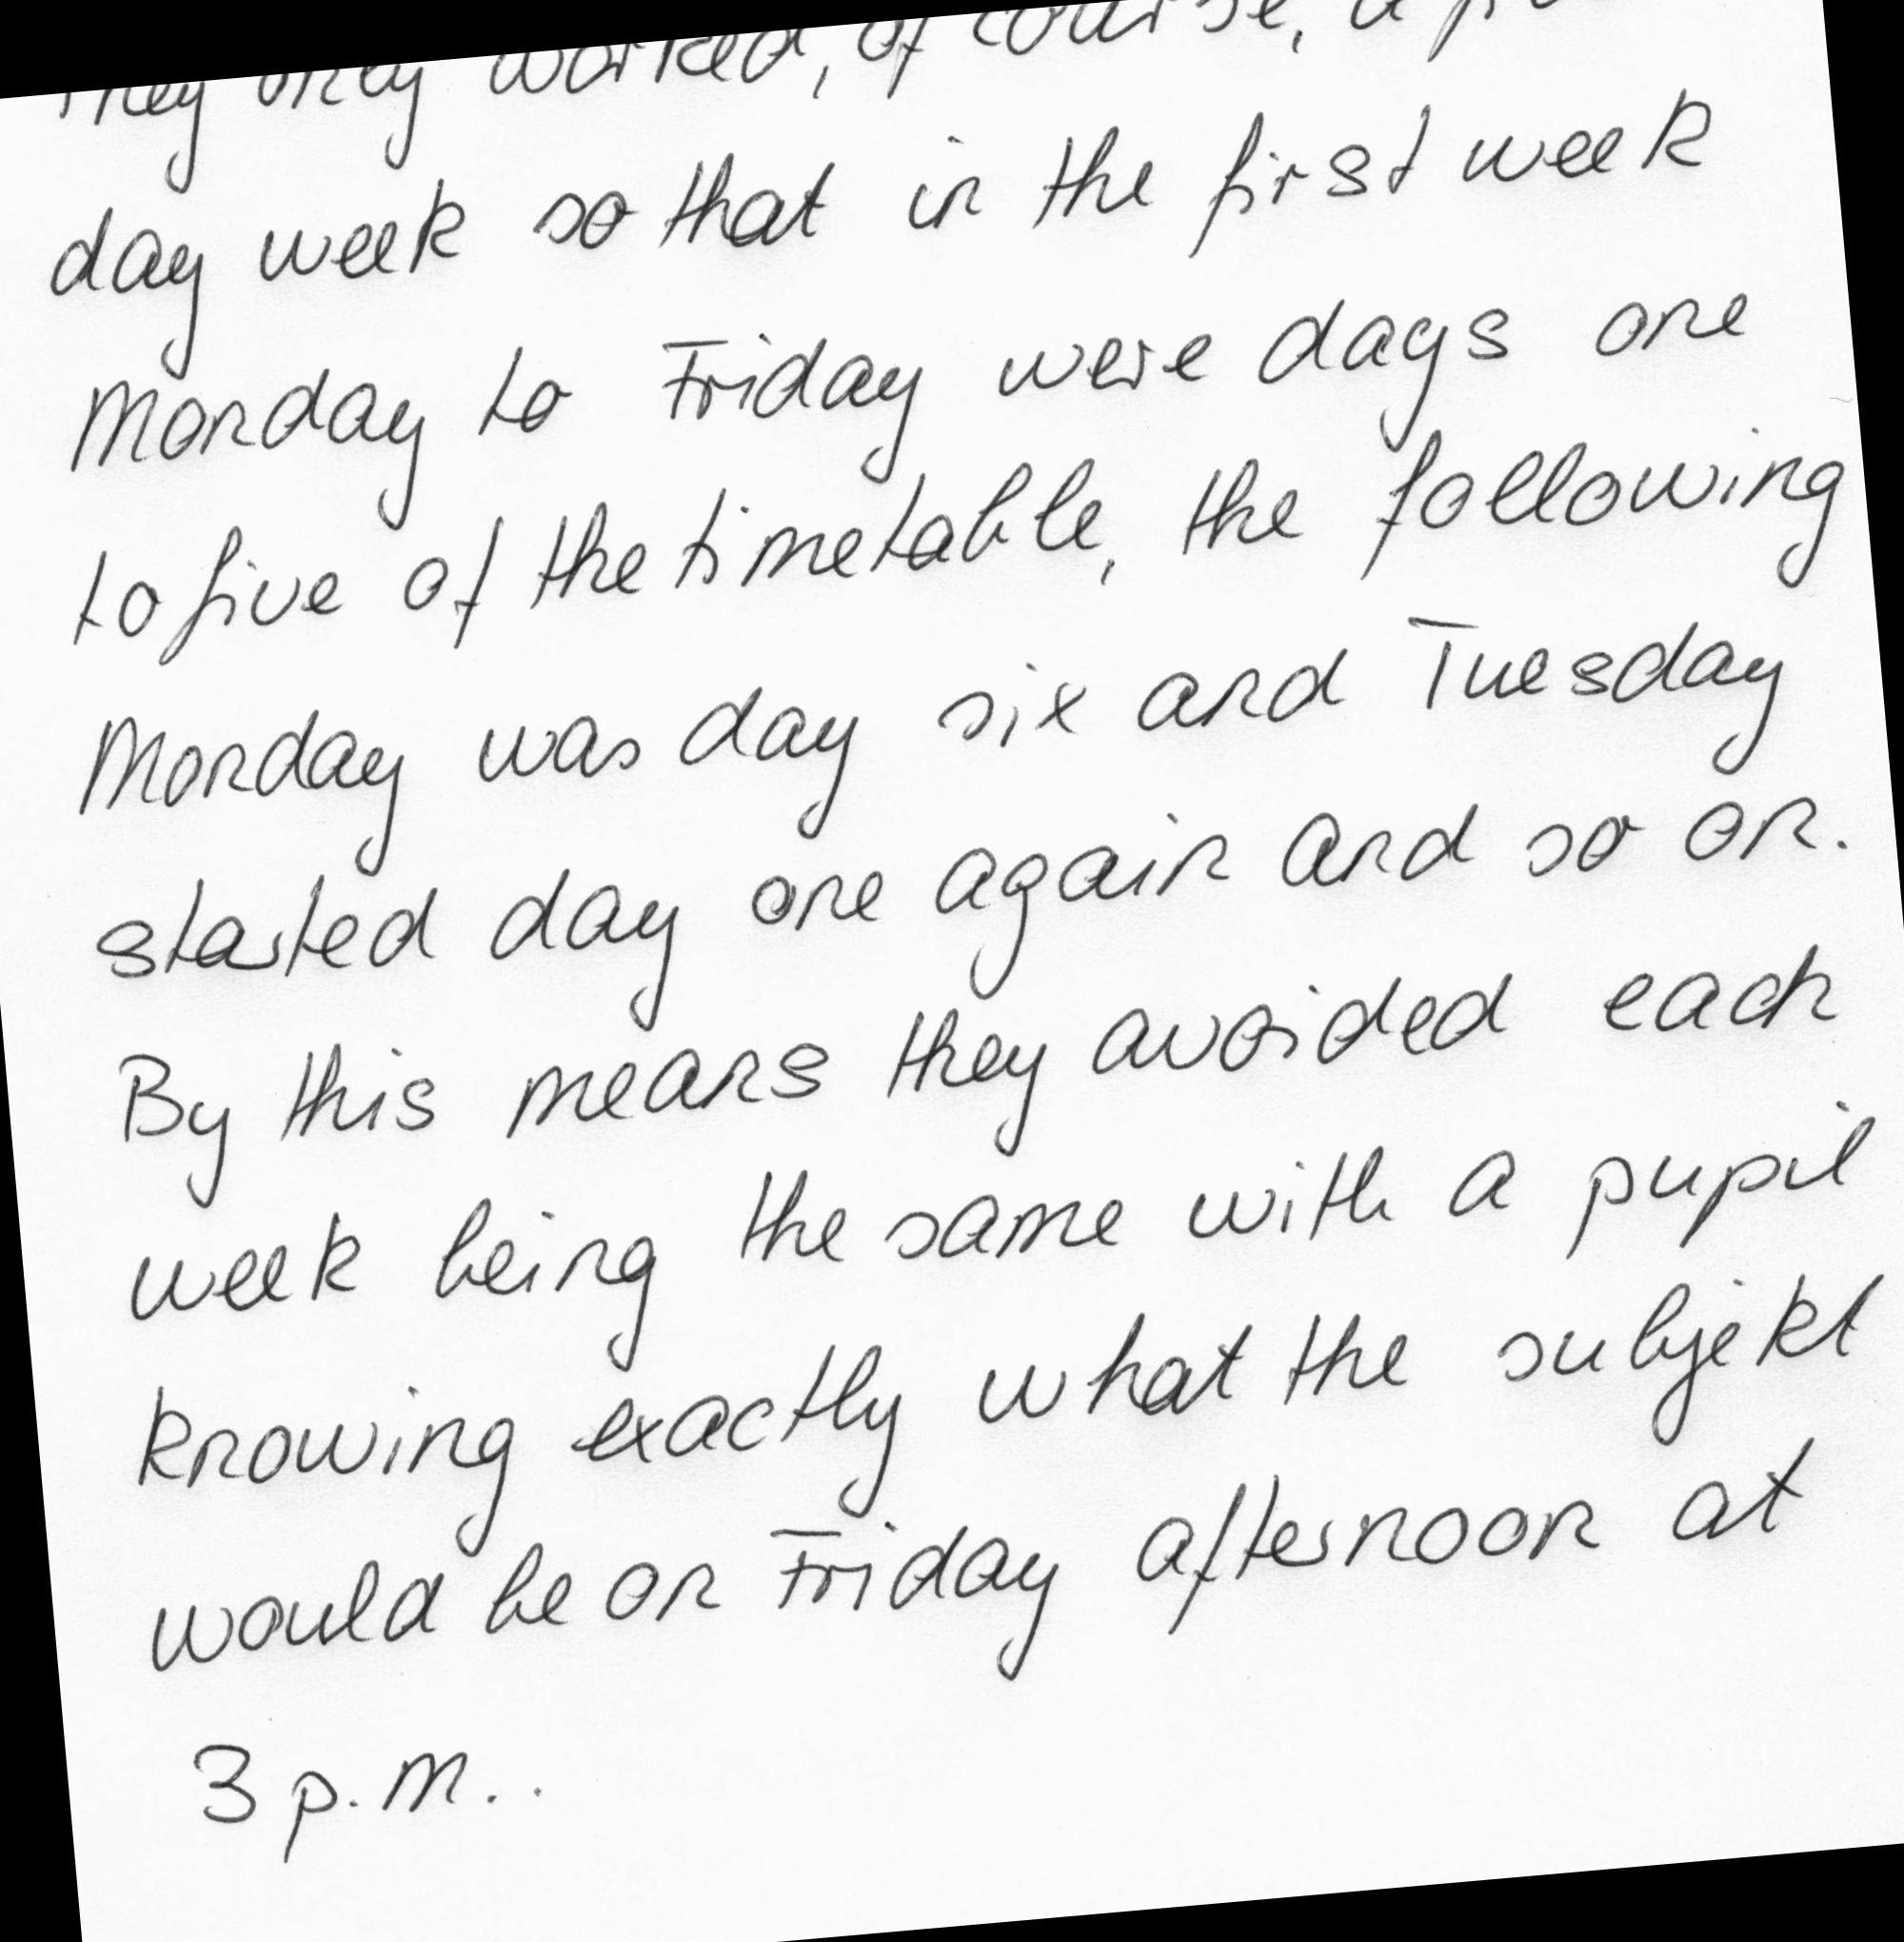 They only worked, of course, a
day week so that in the first week
Monday to Friday were days one
to five of the timetable, the following
Monday was day six and Tuesday
started day one again and so on.
By this means they avoided each
week being the same with a pupil
knowing exactly what the subjekt
would be on Friday afternoon at
3 p.m..